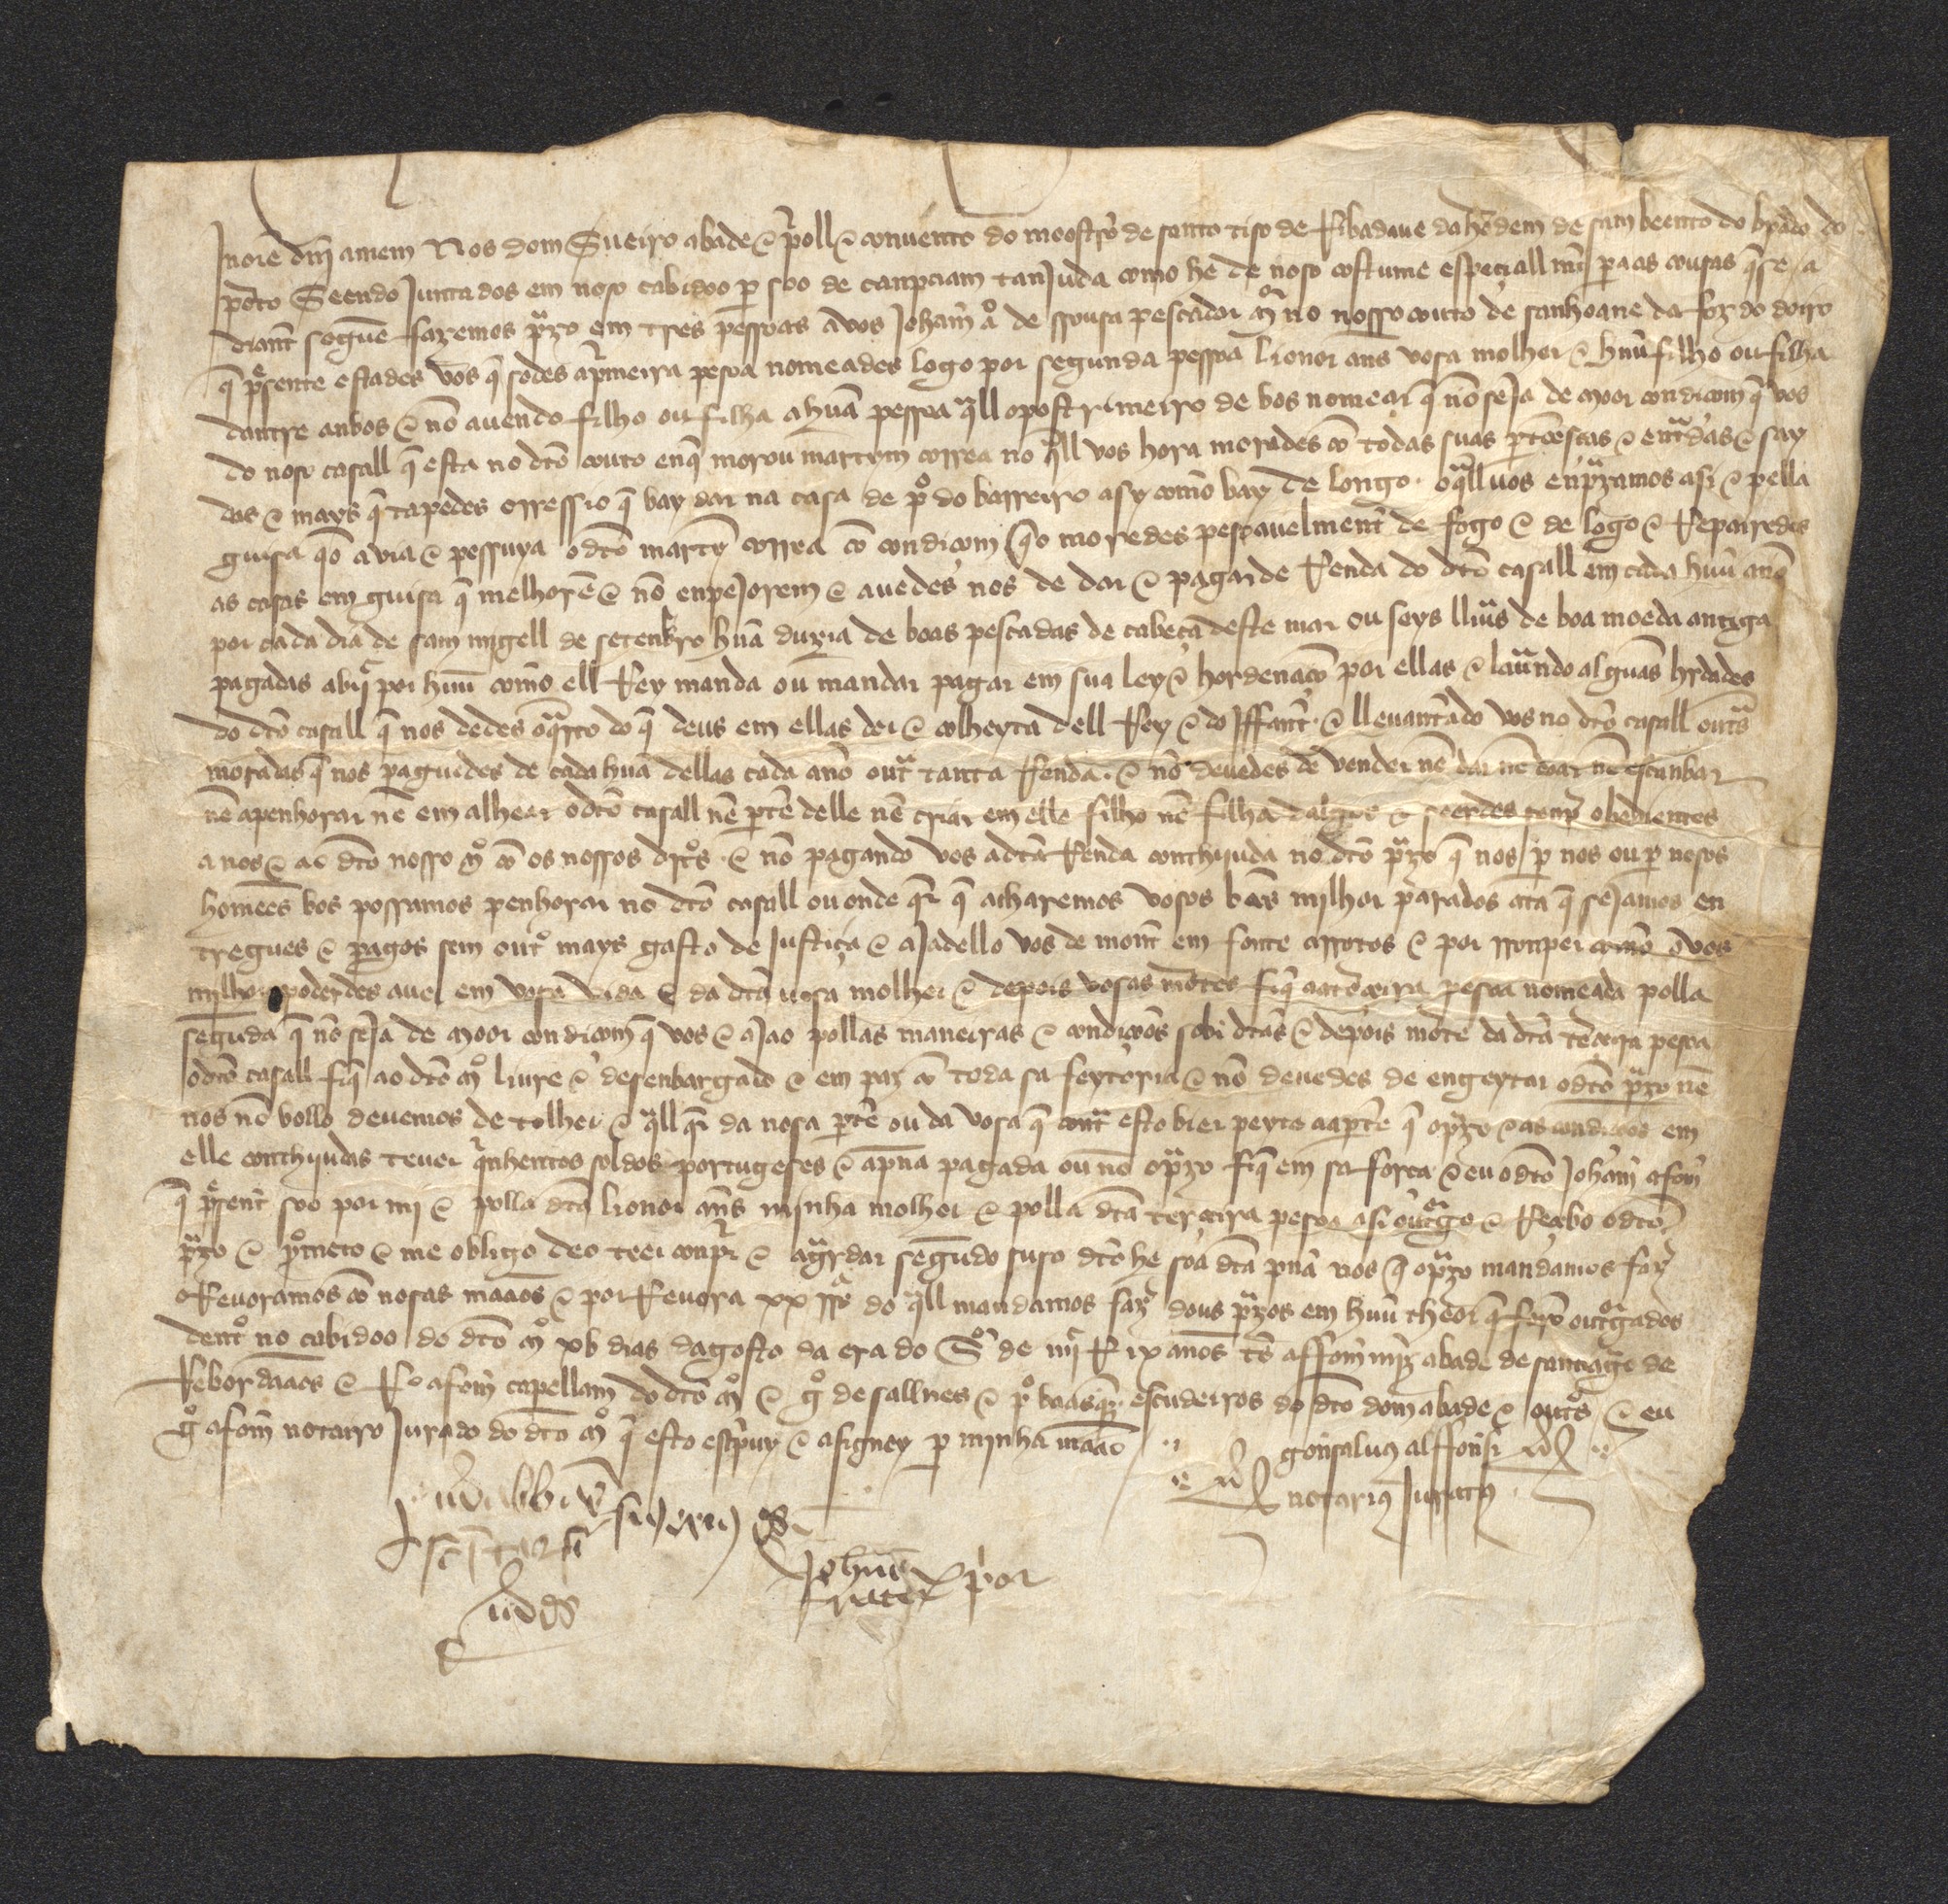 In noīe dñi amem Nos dom Sueiro abade ⁊ p̃oll ⁊ convento do moostr̃o de santo tiso de Ribadaue da hordem de sam beento do bp̃ado do
porto Seendo Juntados em noso cabidoo per soo de canpaam tanJuda como he de noso costume especiallmẽt pera as cousas q̃ se a
diant̃ seguẽ fazemos p̃zo em tres pessoas a vos Joham̃ aº de ssousa pescador mor̃ no nosso couto de sanhoane da foz do doiro
q̃ p̃sente estades vos q̃ sodes a p̃meira pesoa nomeades logo por segunda pessoa lionor añs vosa molher ⁊ huũ filho ou filha
dantre anbos ⁊ nõ avendo filho ou filha a huã pessoa q̃ll o postrimeiro de bos nomear q̃ nõ seJa de moor condicom q̃ vos
do noso casall q̃ esta no dt̃o couto en q̃ morou martym correa no q̃ll vos hora morades cõ todas suas pertẽeças ⁊ ent̃das ⁊ say
das ⁊ mays q̃ tapedes orressio q̃ bay dar na casa de pº do barreiro asy como bay de longo. o q̃ll vos enp̃zamos asi ⁊ pella
guisa q̃ o avia ⁊ pessuya o dt̃o martỹ correa cõ condicom q̃ o moredes pesoavelment̃ de fogo ⁊ de logo ⁊ Repairedes
as casas em guisa q̃ melhorẽ ⁊ nõ enpeJorem ⁊ avedes nos de dar ⁊ pagar de Renda do dt̃o casall em cada huũ ano
por cada dia de sam migell de setenbro huã duzia de boas pescadas de cabeca deste mar ou seys llivr̃s de boa moeda antiga
pagadas por huũ como ell Rey manda ou mandar pagar em sua ley ⁊ hordenacõ por ellas ⁊ lavrando alguas herdades
do dt̃o casall q̃ nos dedes o q̃rto do q̃ deus em ellas der ⁊ colheyta dell Rey ⁊ do Iffant̃. ⁊ llevantãdo vos no dt̃o casall outr̃s
moradas q̃ nos paguedes de cada huã dellas cada ano outr̃ tanta Renda. ⁊ nõ devedes de vender nẽ dar nẽ doar nẽ escanbar
nẽ apenhorar nẽ em alhear o dt̃o casall nẽ parte delle nẽ criar em elle filho nẽ filha dalgo ⁊ seerdes senp̃ obedientes
a nos ⁊ ao dt̃o nosso mº cõ os nossos dr̃tos. ⁊ nõ pagando vos a dt̃a Renda conthyuda no dt̃o p̃zo q̃ nos per nos ou per nosos
homẽes bos possamos penhorar no dt̃o casall ou onde q̃r q̃ acharemos vosos bẽes milhor parados ata q̃ seJamos en
tregues ⁊ pagos sem outº mays gasto de Justiça ⁊ aJadello vos de mont̃ em fonte arrotos ⁊ por rronper como o vos
milhor poderdes aver em vosa vida ⁊ da dt̃a vosa molher ⁊ depois vosas mortes fiq̃ a terceira pesoa nomeada polla
segunda q̃ nõ seJa de moor condicom q̃ vos ⁊ aJao pollas maneiras ⁊ condicões sobr dt̃as ⁊ depois morte da dt̃a terceira pesoa
o dt̃o casall fiq̃ ao dt̃o mº livre ⁊ desenbargado ⁊ em paz cõ toda sa feytoria ⁊ nõ devedes de engeytar o dt̃o p̃zo nẽ
nos nẽ bollo devemos de tolher ⁊ q̃ll q̃r da nosa parte ou da vosa q̃ contr̃ esto bier peyte aa parte q̃ o p̃zo ⁊ as condicões em
elle conthyudas tever q̃nhentos soldos portugeses ⁊ a pena pagada ou nõ o p̃zo fiq̃ em sa forca ⁊ eu o dt̃o Joham̃ afom̃
q̃ p̃sent̃ soo por mi ⁊ polla dt̃a lionor añs minha molher ⁊ polla dt̃a terceira pesoa asi outorgo ⁊ Recebo o dt̃o
p̃zo ⁊ p̃meto ⁊ me obligo de o teer conp̃r ⁊ ag̃rdar segundo suso dt̃o he so a dt̃a pena nos q̃ o p̃zo mandamos faz̃
o Revoramos cõ nosas maaos ⁊ por Revora xx ss̃ do q̃ll mandamos faz̃ dous p̃zos em huũ theor q̃ forõ outorgados
dentº no cabidoo do dt̃o mº xb dias dagosto da era do Sº de mil iiijᶜ R ix anos tẽs affom̃ miz̃ abade de santiago de
Rebordaaos ⁊ Rº afom̃ capellam do dt̃o mº ⁊ gº de sallnes ⁊ pº baasq̃z escudeiros do dt̃o dom abade ⁊ outros ⁊ eu
gº afom̃ notairo Jurado do dt̃o mº q̃ esto escp̃vy ⁊ asigney per minha maao
gonsalvus alffonsi
notarius Juratus
suJerius
Johnes
prior